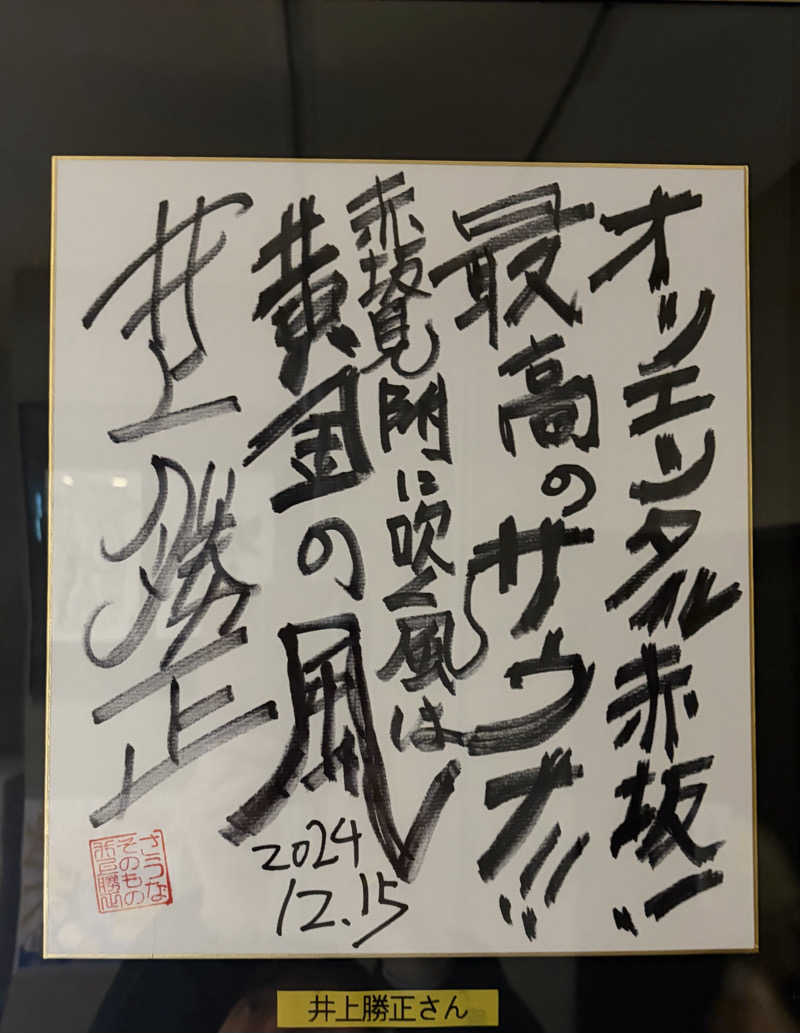 オリエンタル赤坂!
最高のサウナ!!
赤坂見附に吹く風は
黄金の風
2024
12.15
井上勝正
さうな
そのもの
井上勝正
井上勝正さん